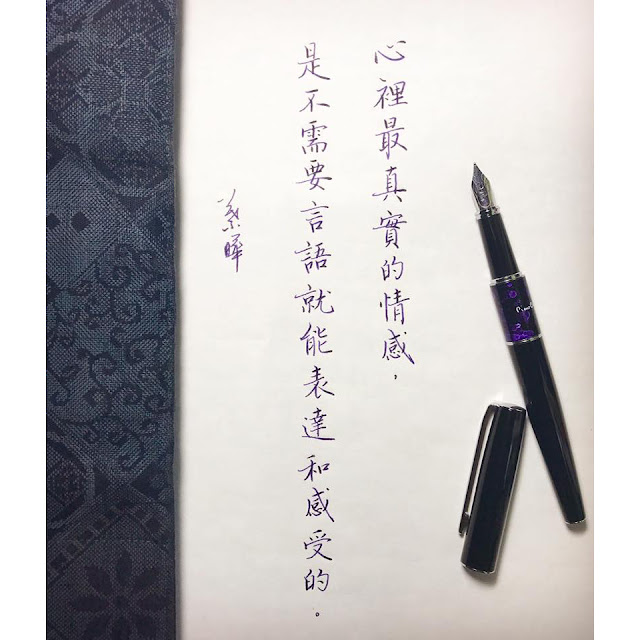 心裡最真實的情感，
是不需要言語就能表達和感受的。